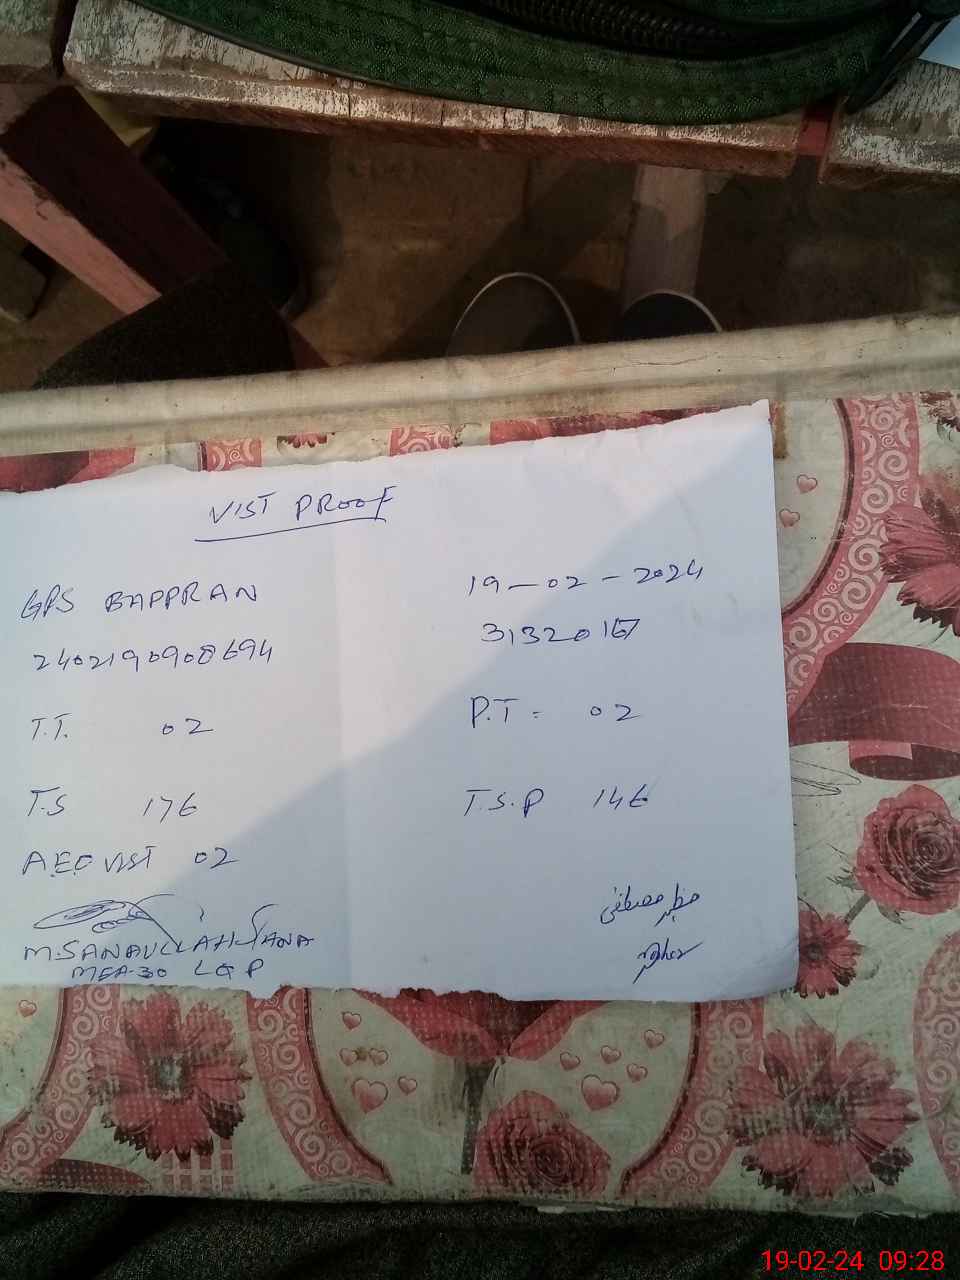 VIST PROOF
GPS BAPPRAN 19-02-2024
2402190908694 31320167
T.T. 02 P.T = 02
T.S 176 T.S.P 146
A.E.O VIST 02
مظہر مصطفیٰ
M.SANAULLAH RANA
MEA-30 LOP
19-02-24 09:28